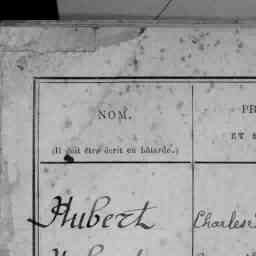 NOM. PR
(Il doit être écrit en bâtarde.) ET
Hubert Charles